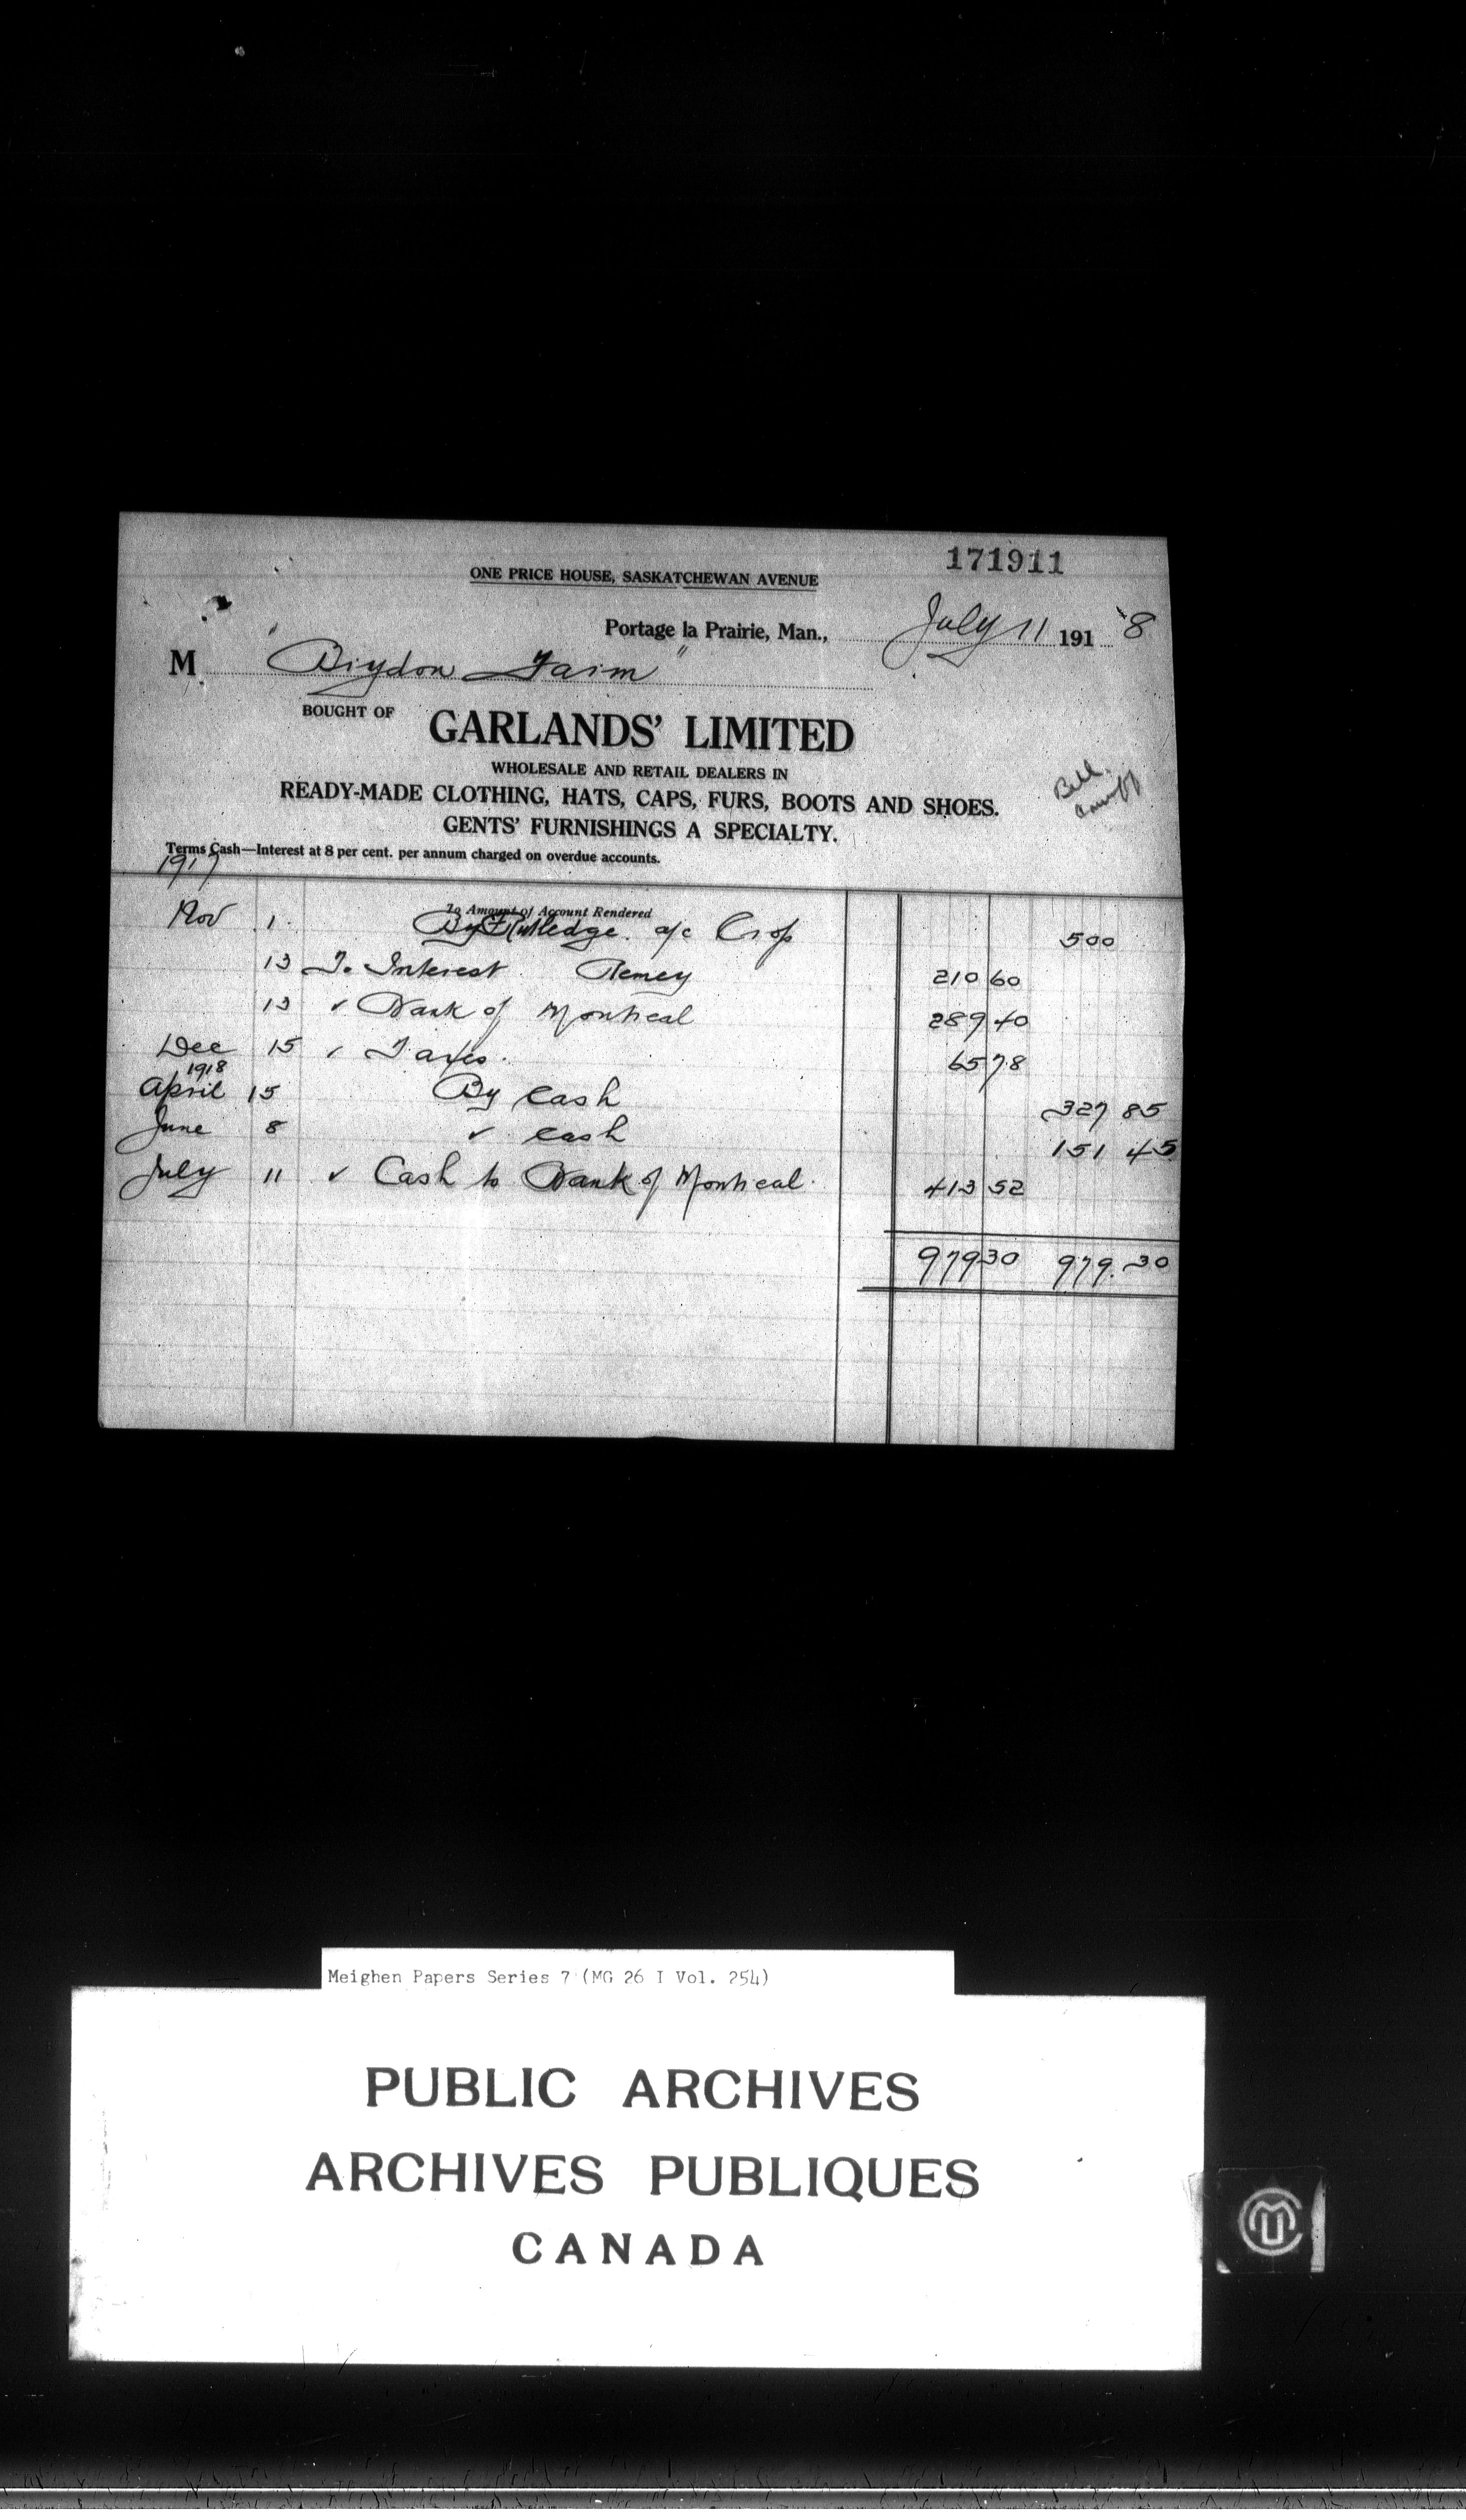 171911
ONE PRICE HOUSE, SASKATCHEWAN AVENUE
Portage la Prairie, Man., July 11 1918
M "Brydon Farm"
BOUGHT OF GARLANDS' LIMITED
WHOLESALE AND RETAIL DEALERS IN
READY-MADE CLOTHING, HATS, CAPS, FURS, BOOTS AND SHOES.
GENTS' FURNISHINGS A SPECIALTY.
Bill
Terms Cash—Interest at 8 per cent. per annum charged on overdue accounts.
1917
To Amount of Account Rendered
Nov 1 By Rutledge a/c Crop 500
13 To Interest 210 60
13 " Bank of Montreal 289 40
Dec 15 " Taxes. 65 78
1918
April 15 By Cash 327 85
June 8 " Cash 151 45
July 11 " Cash to Bank of Montreal. 413 52
979 30 979.30
Meighen Papers Series 7 (MG 26 I Vol. 254)
PUBLIC ARCHIVES
ARCHIVES PUBLIQUES
CANADA